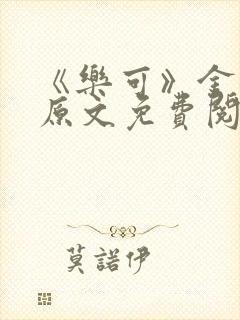 《樂可》全
原文免費閱
莫諾伊